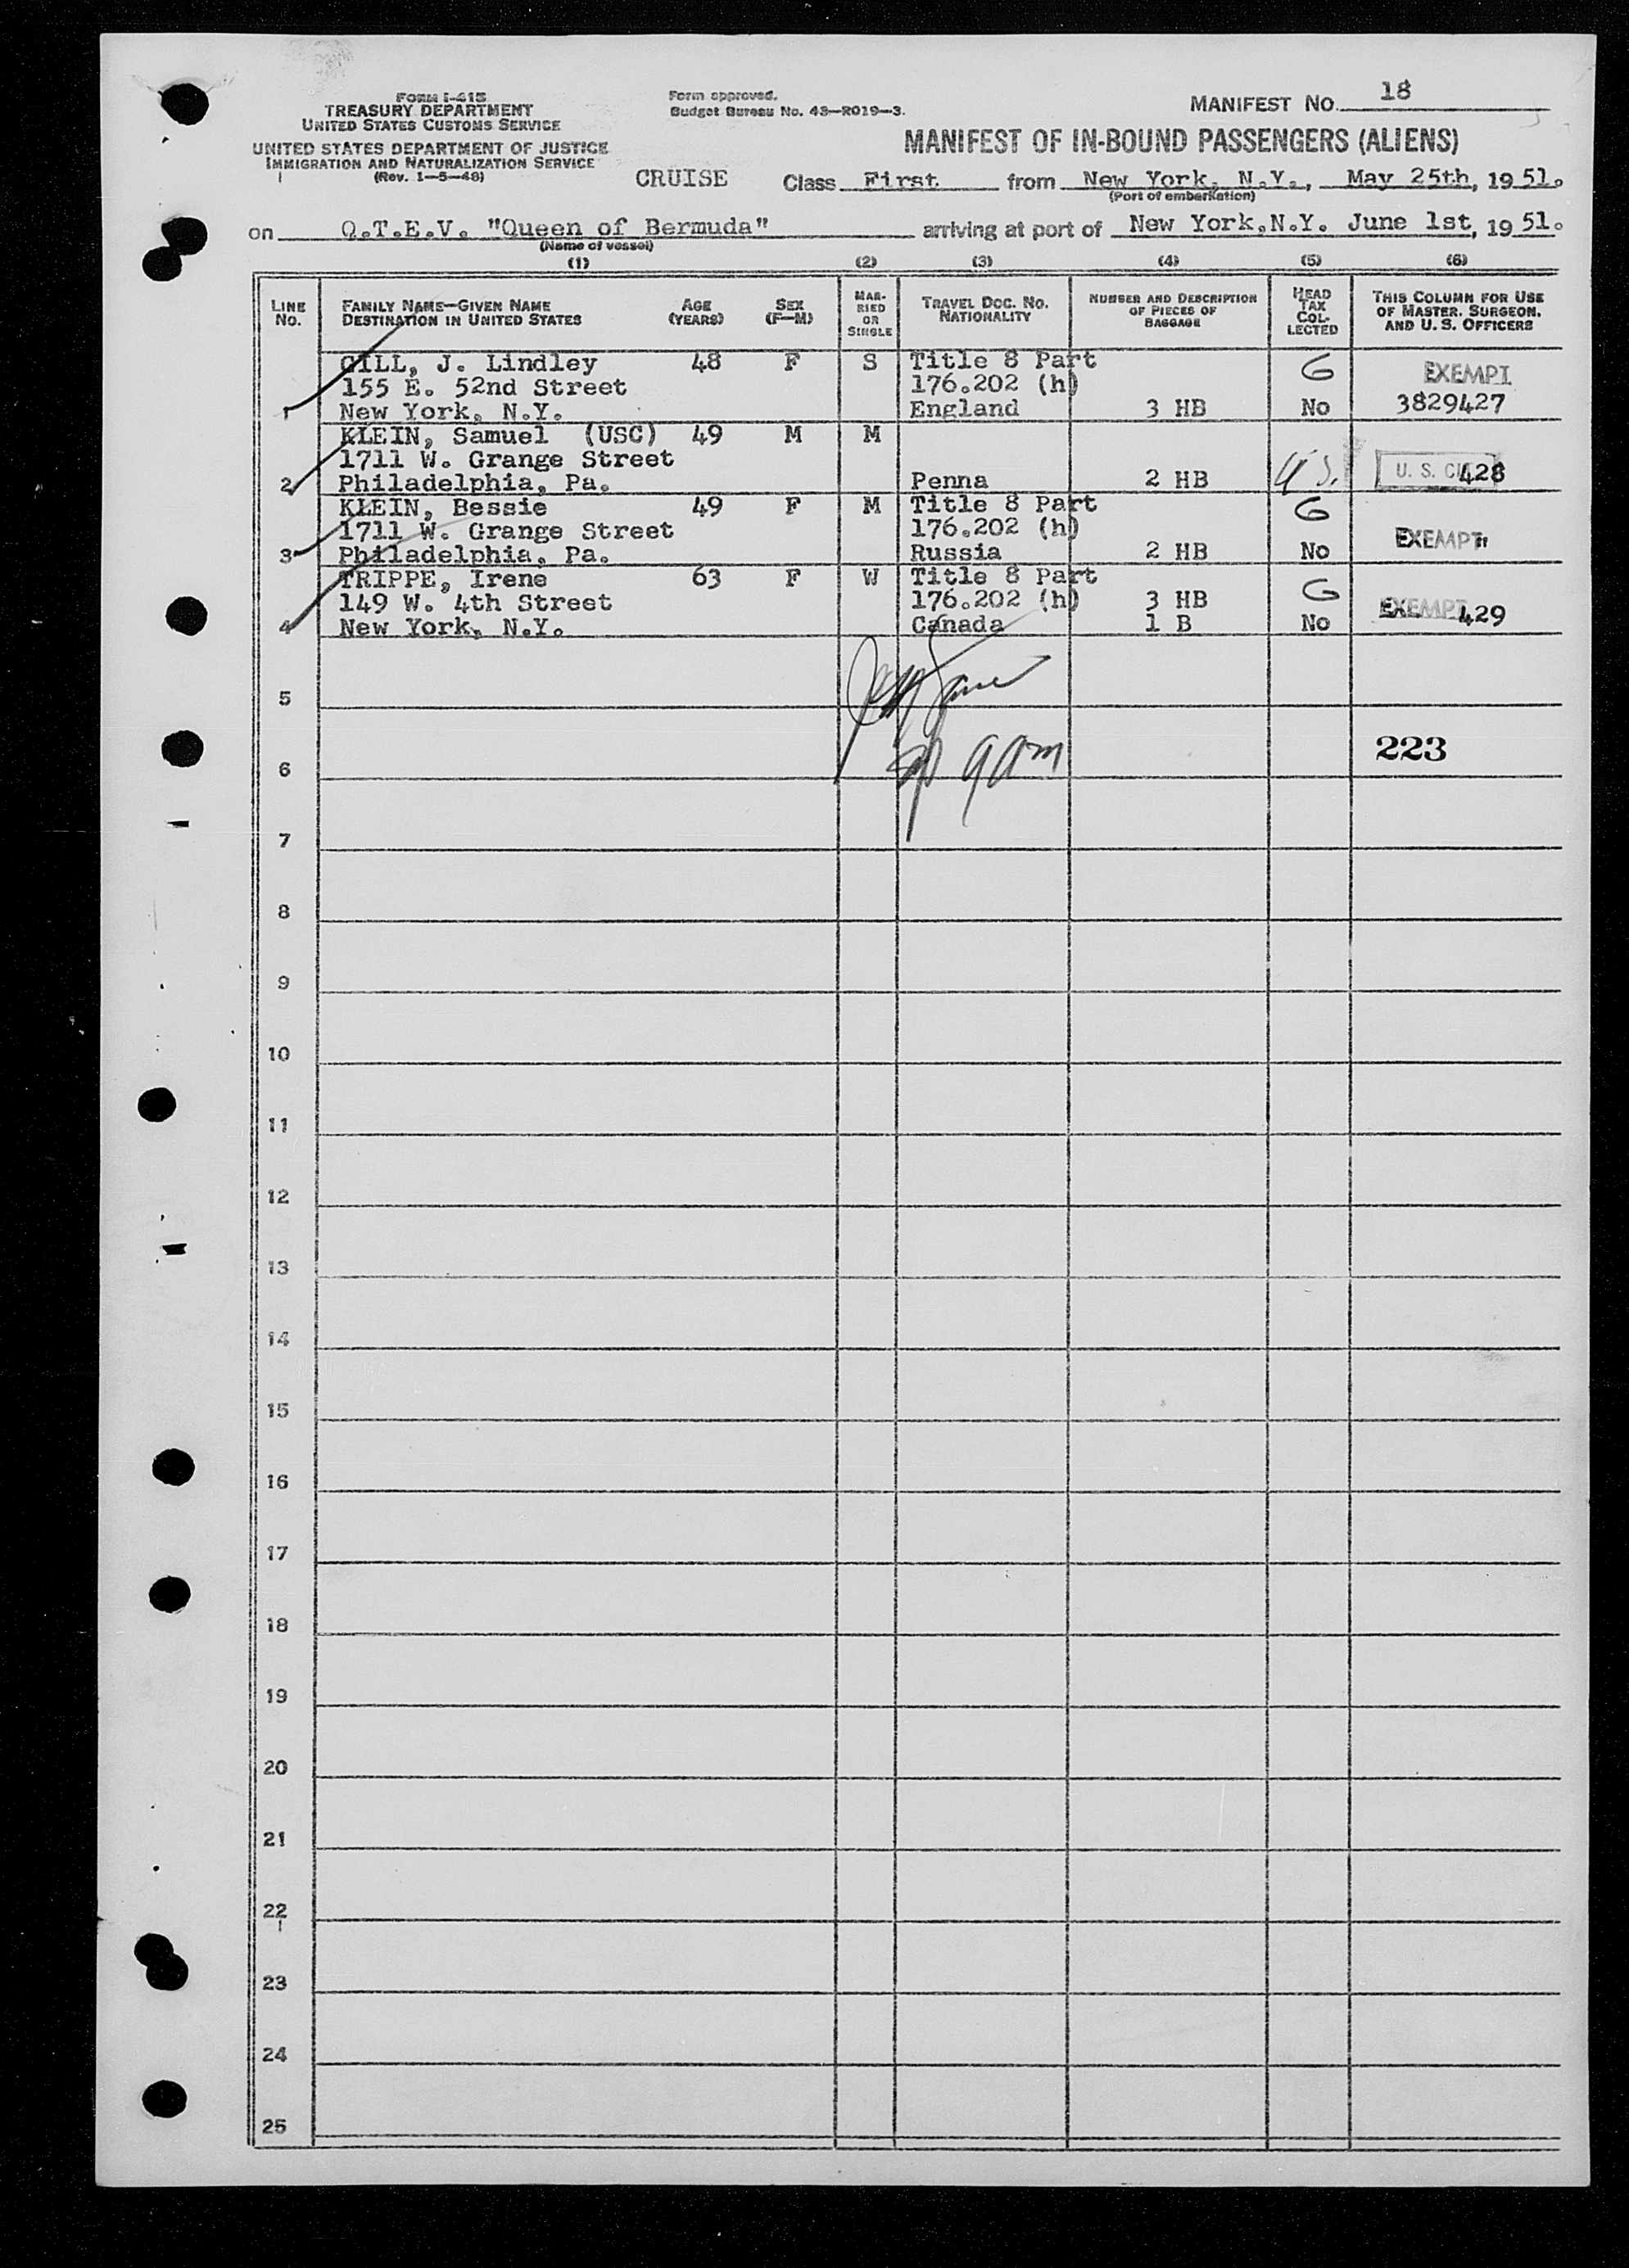 FORM I-415
TREASURY DEPARTMENT
UNITED STATES CUSTOMS SERVICE
UNITED STATES DEPARTMENT OF JUSTICE
IMMIGRATION AND NATURALIZATION SERVICE
(Rev. 1-5-48)
Form approved.
Budget Bureau No. 43-R019-3.
MANIFEST NO. 18
MANIFEST OF IN-BOUND PASSENGERS (ALIENS)
CRUISE Class First from New York, N.Y., May 25th, 1951.
(Port of embarkation)
on Q.T.E.V. "Queen of Bermuda" arriving at port of New York,N.Y. June 1st, 1951.
(Name of vessel)
(1) (2) (3) (4) (5) (6)
LINE NO. FAMILY NAME—GIVEN NAME DESTINATION IN UNITED STATES AGE (YEARS) SEX (F—M) MARRIED OR SINGLE TRAVEL DOC. NO. NATIONALITY NUMBER AND DESCRIPTION OF PIECES OF BAGGAGE HEAD TAX COLLECTED THIS COLUMN FOR USE OF MASTER, SURGEON, AND U. S. OFFICERS
GILL, J. Lindley 48 F S Title 8 Part G EXEMPT
155 E. 52nd Street 176.202 (h)
1 New York, N.Y. England 3 HB No 3829427
KLEIN, Samuel (USC) 49 M M
1711 W. Grange Street
2 Philadelphia, Pa. Penna 2 HB U.S. U. S. CIT 428
KLEIN, Bessie 49 F M Title 8 Part G
1711 W. Grange Street 176.202 (h) EXEMPT "
3 Philadelphia, Pa. Russia 2 HB No
TRIPPE, Irene 63 F W Title 8 Part G
149 W. 4th Street 176.202 (h) 3 HB EXEMPT 429
4 New York, N.Y. Canada 1 B No
5
223
9 am
6
7
8
9
10
11
12
13
14
15
16
17
18
19
20
21
22
23
24
25